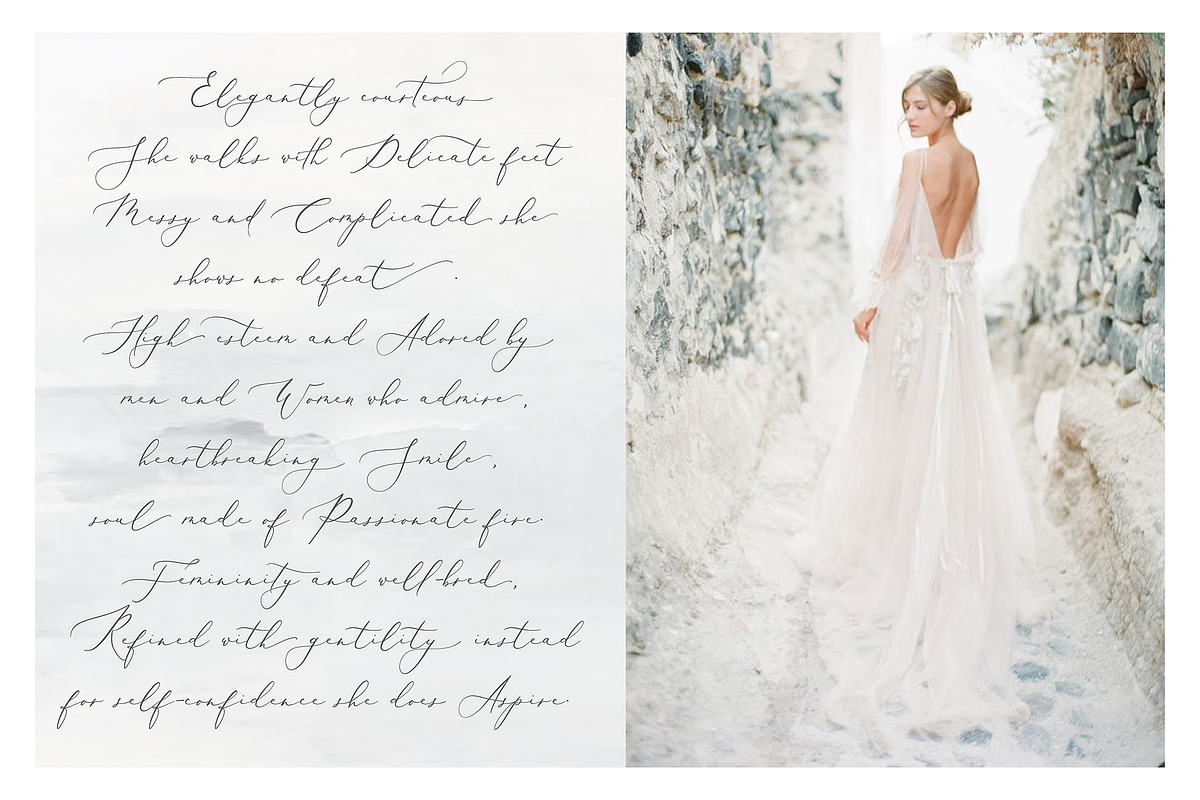 Elegantly courteous
She walks with Delicate feet
Messy and Complicated she
shows no defeat .
High esteem and Adored by
men and Women who admire,
heartbreaking Smile,
soul made of Passionate fire.
Femininity and well-bred,
Refined with gentility instead
for self-confidence she does Aspire.